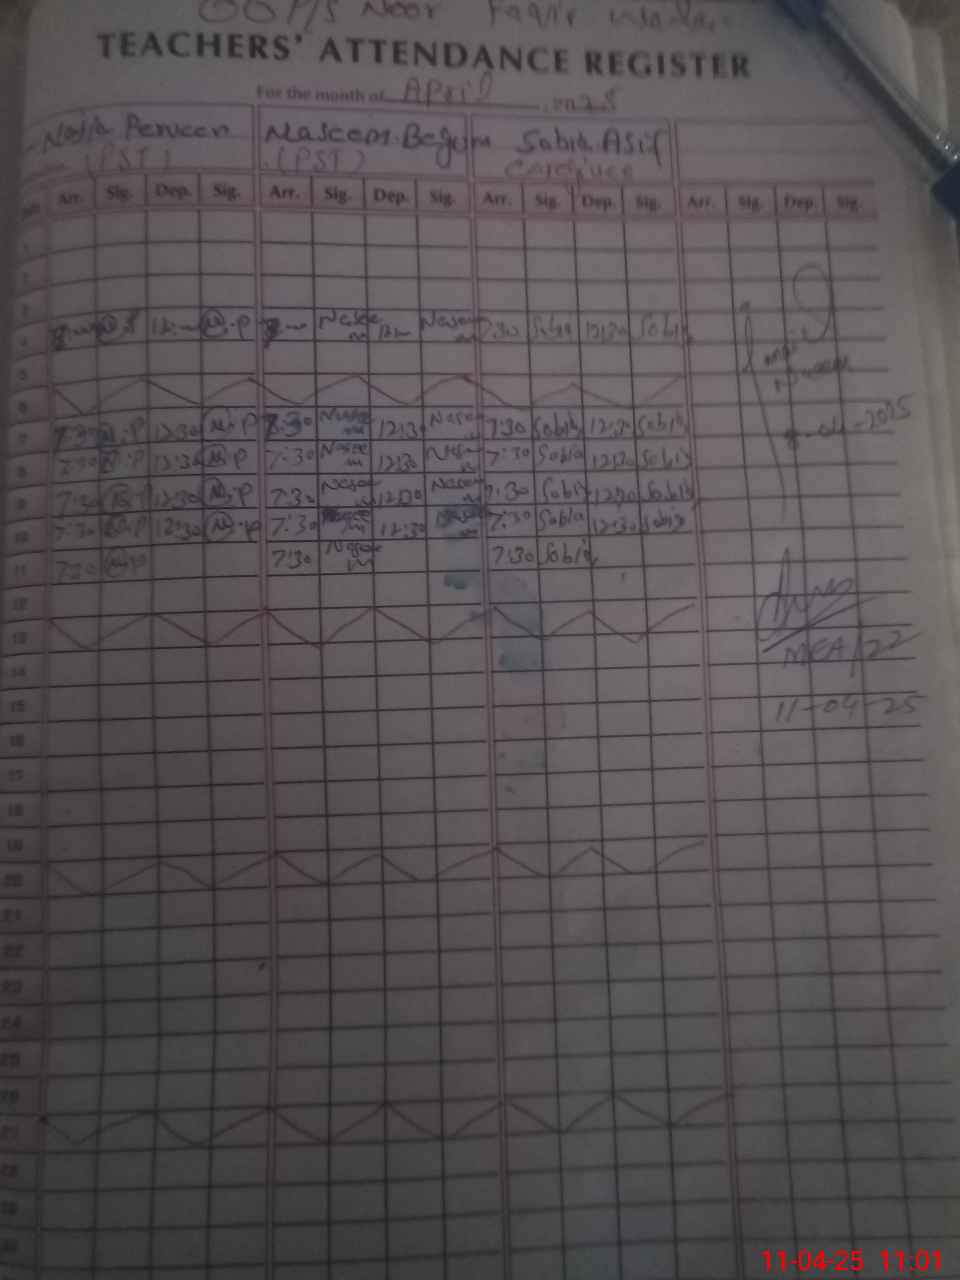 GGP/S Noor Faqir
TEACHERS' ATTENDANCE REGISTER
For the month of April 2025
Perveen Naseem Begum Sobia Asif
(PST) (PST)
Arr. Sig. Dep. Sig. Arr. Sig. Dep. Sig. Arr. Sig. Dep. Sig. Arr. Sig. Dep. Sig.
1
2
3
4 7:30 Sobia 12:30 Sobia
5
6
7 7:30 N.P 12:30 N.P 7:30 Naseem 12:30 Naseem 7:30 Sobia 12:30 Sobia
8 7:30 N.P 12:30 N.P 7:30 Naseem 12:30 Naseem 7:30 Sobia 12:30 Sobia
9 7:30 N.P 12:30 N.P 7:30 Naseem 12:30 Naseem 7:30 Sobia 12:30 Sobia
10 7:30 N.P 12:30 N.P 7:30 12:30 7:30 Sobia 12:30 Sobia
11 7:30 N.P 7:30 Naseem 7:30 Sobia
12
13
MEA/22
14
15 11-04-25
16
17
18
19
20
21
22
23
24
25
26
27
28
29
30
11-04-25 11:01